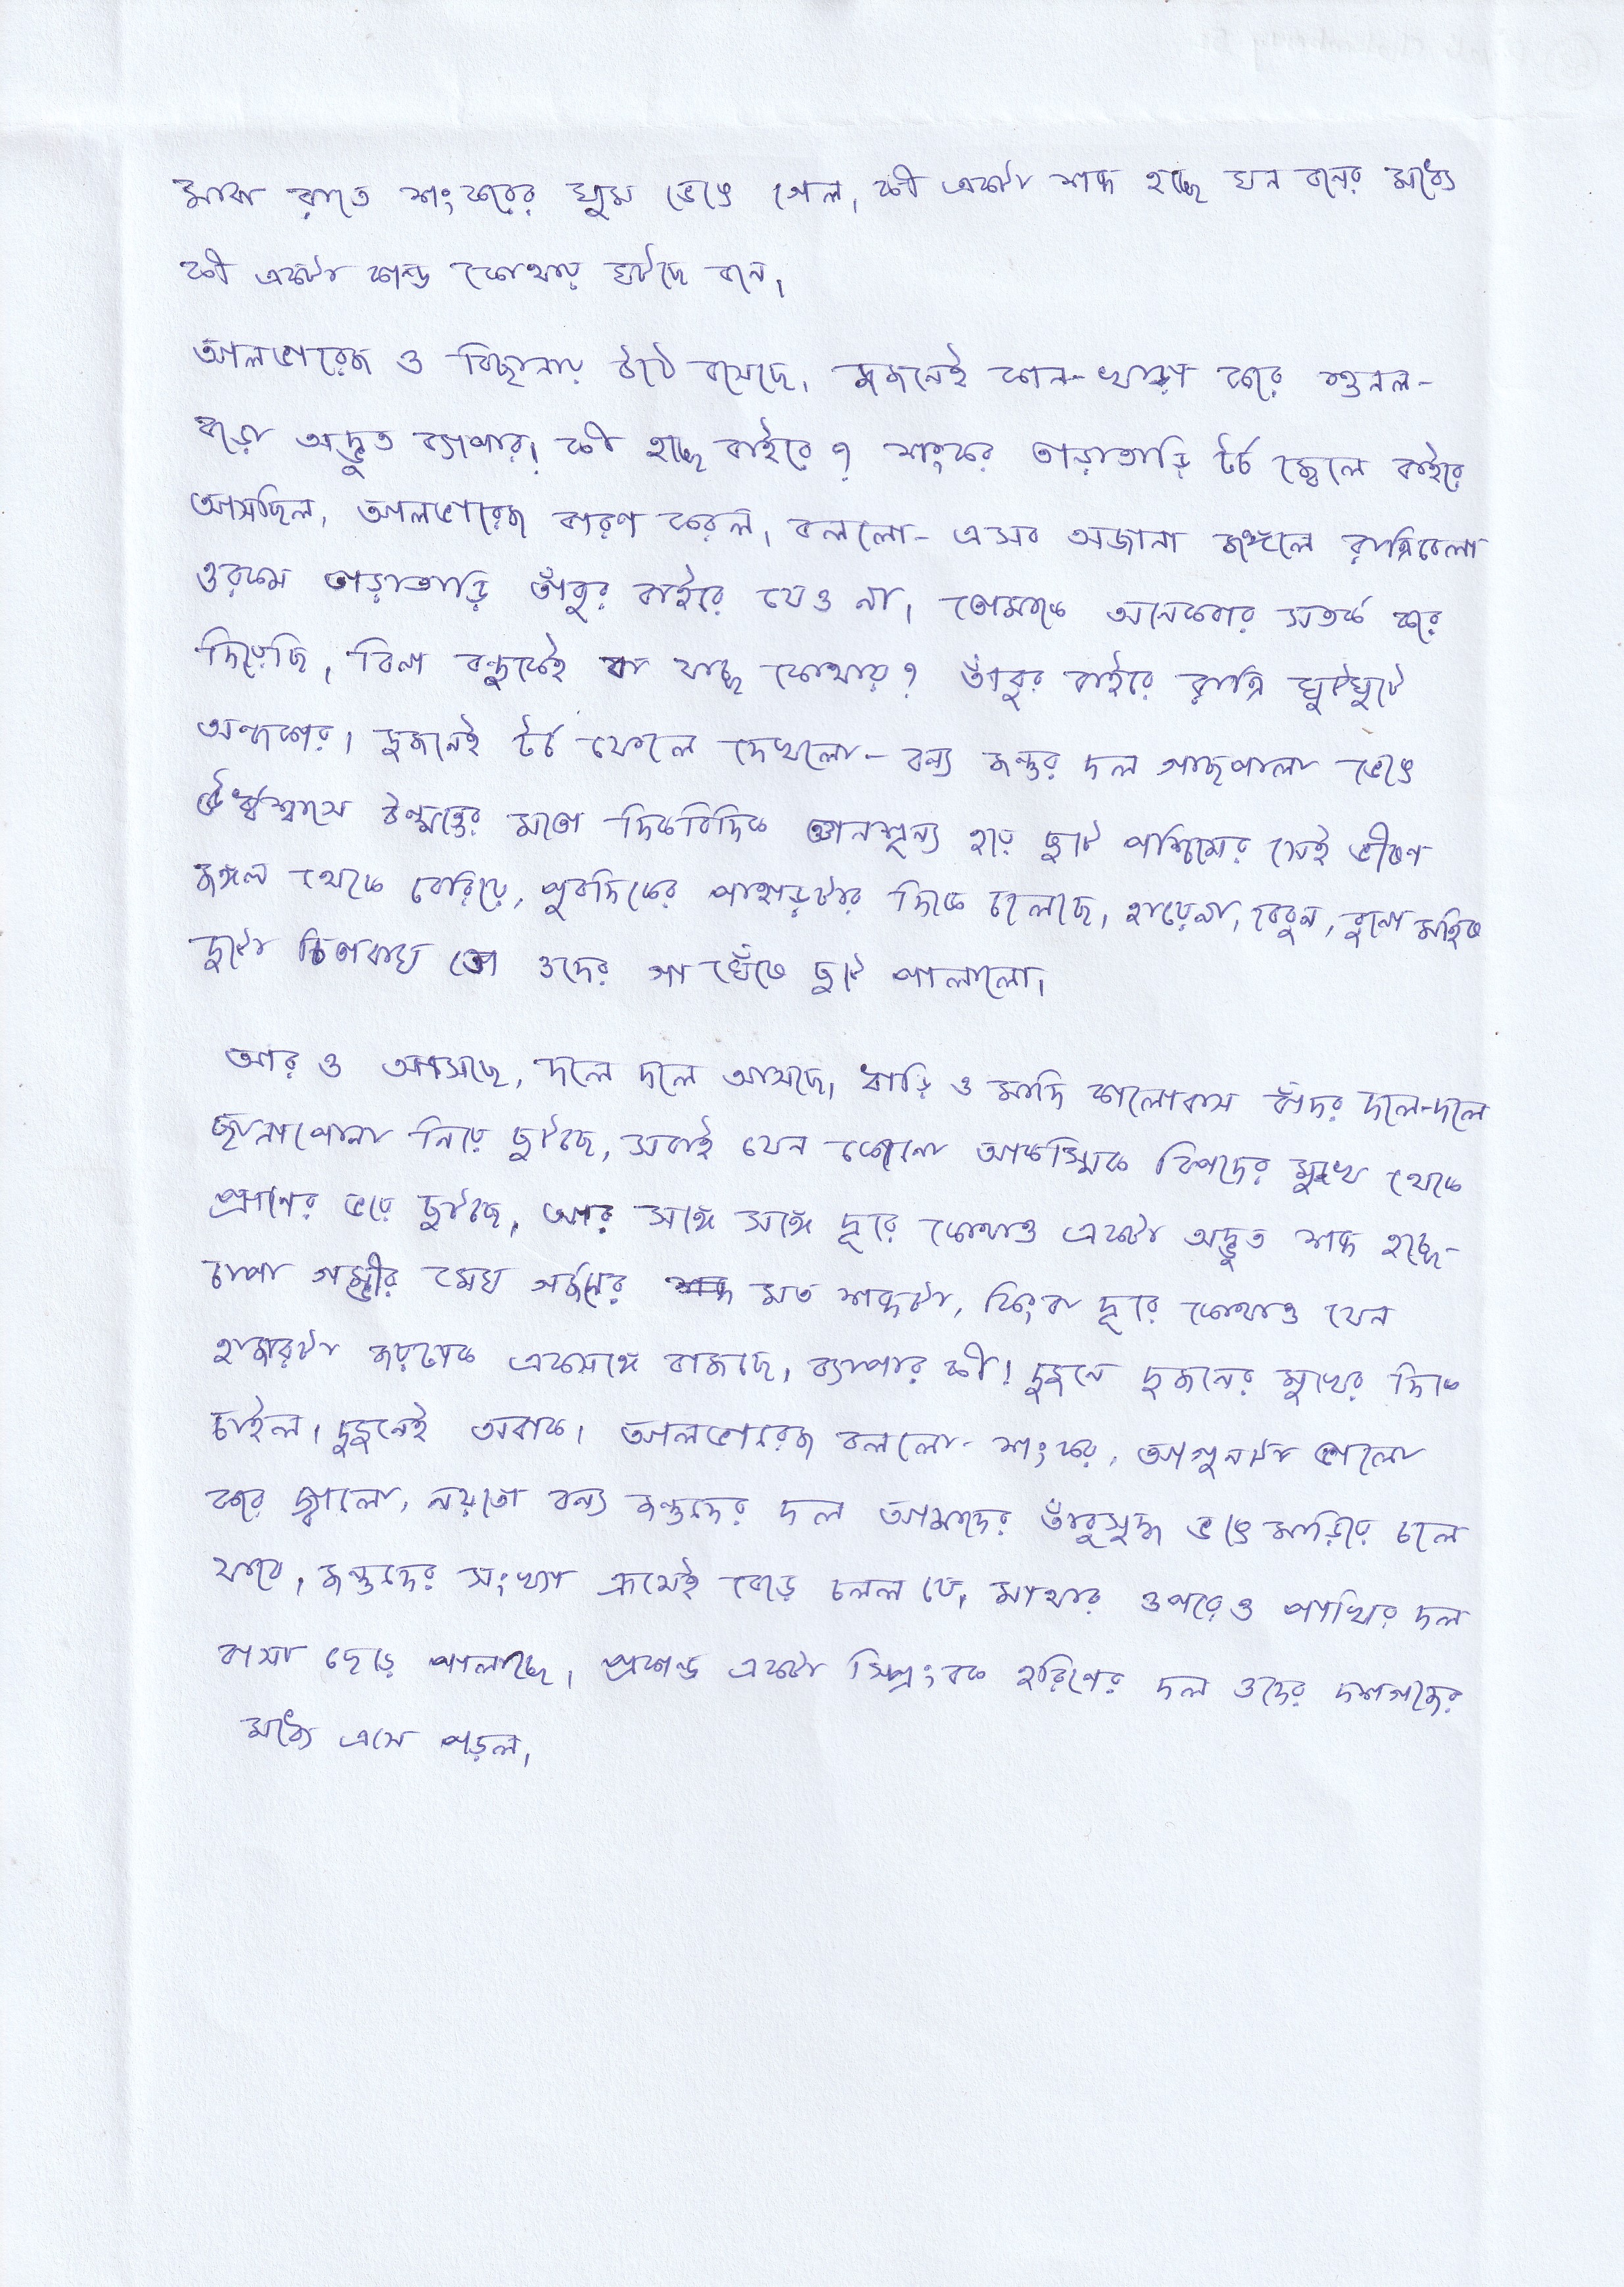 মাঝ রাতে শংকরের ঘুম ভেঙে গেল, কী একটা শব্দ হচ্ছে ঘন বনের মধ্যে
কী একটা কান্ড কোথায় ঘটছে বনে,
আলভারেজ ও বিছানায় উঠে বসেছে, দুজনেই কান-খাড়া করে শুনল-
বড়ো অদ্ভুত ব্যাপার! কী হচ্ছে বাইরে? শংকর তাড়াতাড়ি টর্চ জ্বেলে বাইরে
আসছিল, আলভারেজ বারণ করল, বললো- এসব অজানা জঙ্গলে রাত্রিবেলা
ওরকম তাড়াতাড়ি তাঁবুর বাইরে যেও না, তোমাকে অনেকবার সতর্ক করে
দিয়েছি, বিনা বন্দুকেই বা যাচ্ছ কোথায়? তাঁবুর বাইরে রাত্রি ঘুটঘুটে
অন্ধকার। দুজনেই টর্চ ফেলে দেখলো- বন্য জন্তুর দল গাছপালা ভেঙে
ঊর্ধ্বশ্বাসে উন্মত্তের মতো দিকবিদিক জ্ঞানশূন্য হয়ে ছুটে পশ্চিমের সেই ভীষণ
জঙ্গল থেকে বেরিয়ে, পুবদিকের পাহাড়টার দিকে চলেছে, হায়েনা, বেবুন, বুনো মহিষ
দুটো চিতাবাঘ তো ওদের গা ঘেঁষে ছুটে পালালো,
আর ও আসছে, দলে দলে আসছে, ধাড়ি ও মাদি কালোবাস বাঁদর দলে-দলে
ছানাপোনা নিয়ে ছুটছে, সবাই যেন কোনো আকস্মিক বিপদের মুখে থেকে
প্রাণের ভয়ে ছুটছে, আর সঙ্গে সঙ্গে দূরে কোথাও একটা অদ্ভুত শব্দ হচ্ছে-
চাপা গম্ভীর মেঘ গর্জনের মত শব্দটা, কিংবা দূরে কোথাও যেন
হাজারটা জয়ঢাক একসঙ্গে বাজছে, ব্যাপার কী! দুজনে দুজনের মুখের দিকে
চাইল। দুজনেই অবাক। আলভারেজ বললো- শংকর, আগুনটা ভালো
করে জ্বালো, নয়তো বন্য জন্তুদের দল আমাদের তাঁবুসুদ্ধ ভেঙে মাড়িয়ে চলে
যাবে, জন্তুদের সংখ্যা ক্রমেই বেড়ে চলল যে, মাথার ওপরেও পাখির দল
বাসা ছেড়ে পালাচ্ছে, প্রকান্ড একটা স্প্রিংবক হরিণের দল ওদের দশগজের
মধ্যে এসে পড়ল,